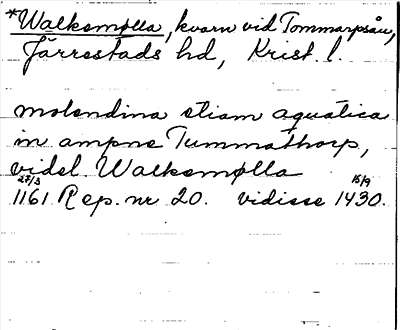 *Walksmølla, kvarn vid Tommarpsån,
Järrestads hd, Krist. l.
molendina etiam aquatica
in ampne Tummathorp,
videl. Walksmølla
27/3 15/9
1161 Rep. nr 20. vidisse 1430.